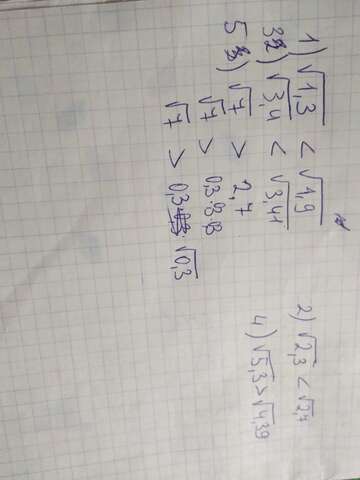 1) √1,3 < √1,9
3) √3,4 < √3,41
5) √7 > 2,7
√7 > 0,3·8·8
√7 > 0,3 √0,3
2) √2,3 < √2,7
4) √5,3 > √4,39